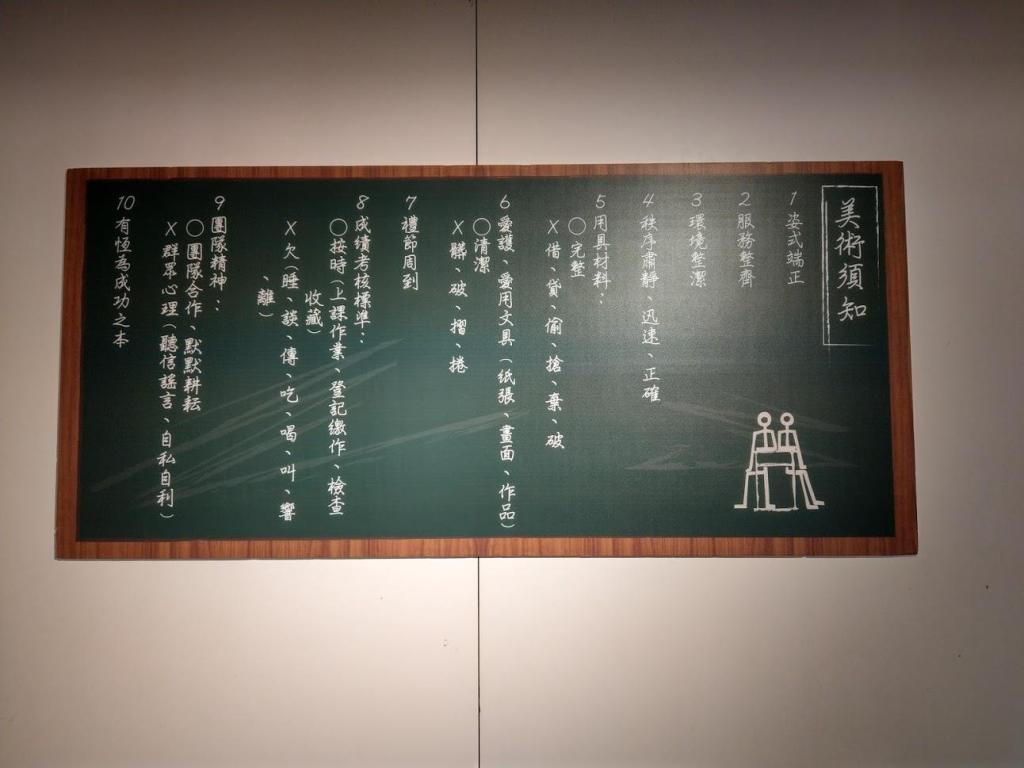 美術須知
1 姿式端正
2 服務整齊
3 環境整潔
4 秩序肅靜、迅速、正確
5 用具材料：
○ 完整
X 借、貸、偷、搶、棄、破
6 愛護、愛用文具（紙張、畫面、作品）
○ 清潔
X 髒、破、摺、捲
7 禮節周到
8 成績考核標準：
○ 按時（上課作業、登記繳作、檢查
收藏）
X 欠（睡、談、傳、吃、喝、叫、響
、離）
9 團隊精神：
○ 團隊合作、默默耕耘
X 群眾心理（聽信謠言、自私自利）
10 有恆為成功之本